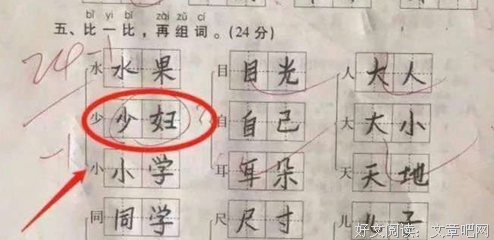 bǐ yi bǐ zài zǔ cí
五、比一比，再组词。(24分)
24-1
水 水果 目 目光 人 大人
少 少妇 自 自己 大 大小
-1
小 小学 耳 耳朵 天 天地
同 同学 尺 尺寸 儿 儿子
好文阅读，文章吧网